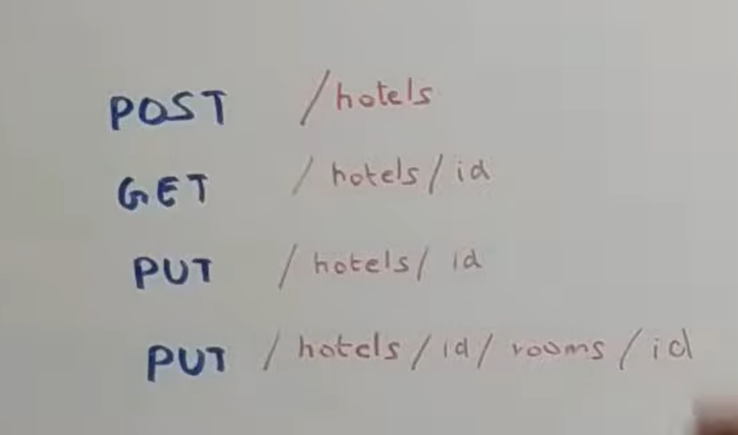 POST /hotels
GET /hotels/id
PUT /hotels/id
PUT /hotels/id/rooms/id